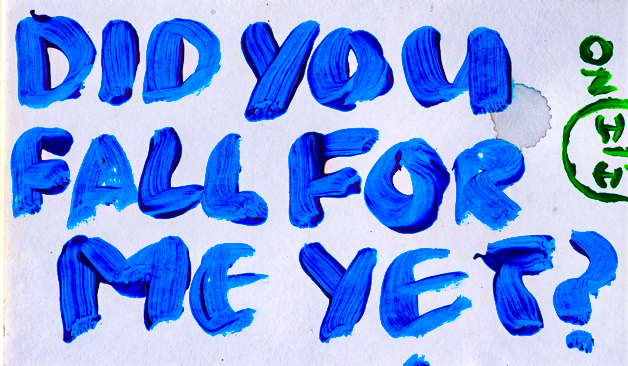 DID YOU
FALL FOR
ME YET?